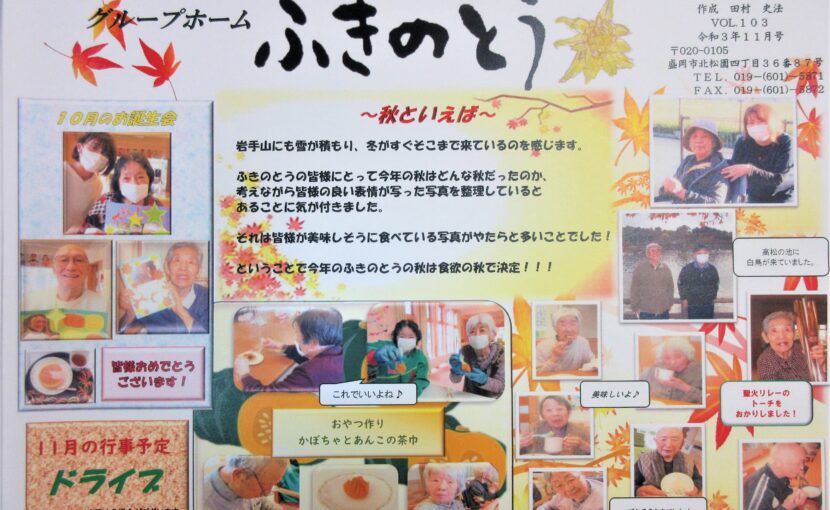 グループホーム
ふきのとう
作成 田村 史法
VOL.103
令和3年11月号
〒020-0105
盛岡市北松園四丁目36番87号
TEL. 019-(601)-5871
FAX. 019-(601)-5872
10月のお誕生会
皆様おめでとう
ございます!
11月の行事予定
ドライブ
~秋といえば~
岩手山にも雪が積もり、冬がすぐそこまで来ているのを感じます。
ふきのとうの皆様にとって今年の秋はどんな秋だったのか、
考えながら皆様の良い表情が写った写真を整理していると
あることに気が付きました。
それは皆様が美味しそうに食べている写真がやたらと多いことでした!
ということで今年のふきのとうの秋は食欲の秋で決定!!!
これでいいよね♪
おやつ作り
かぼちゃとあんこの茶巾
高松の池に
白鳥が来ていました。
美味しいよ♪
聖火リレーの
トーチを
おかりしました!